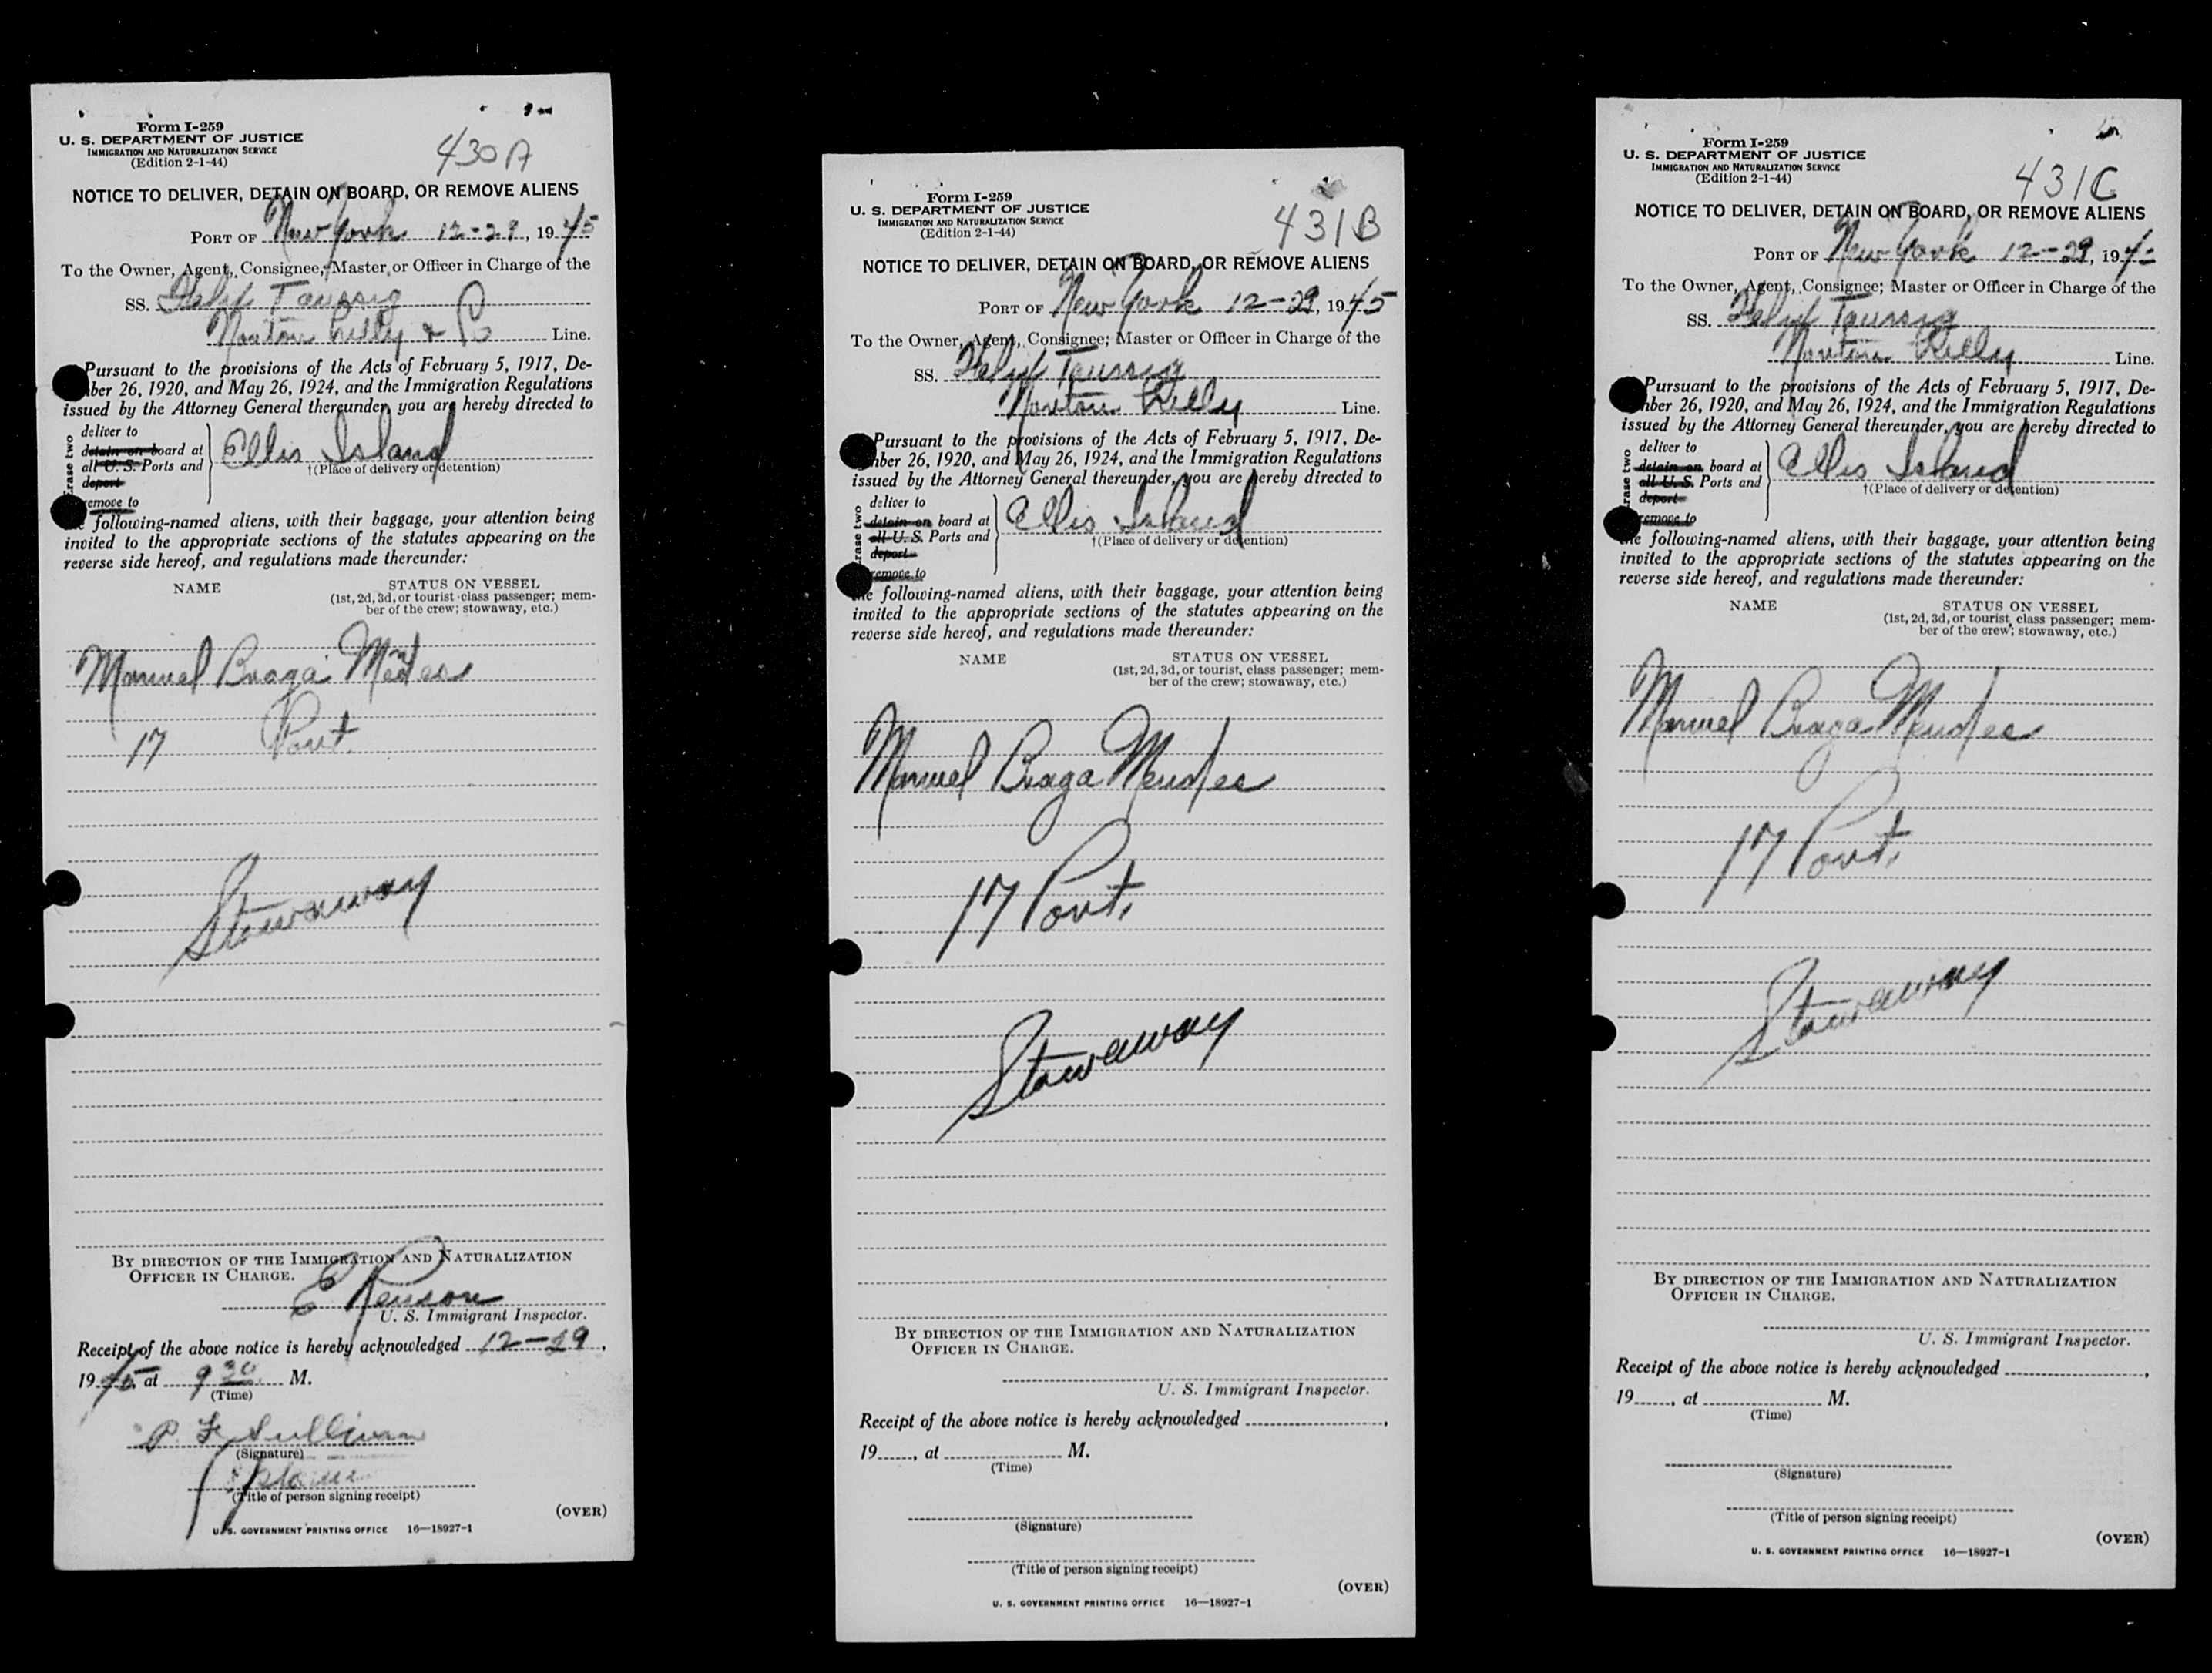 Form I-259
U. S. DEPARTMENT OF JUSTICE
IMMIGRATION AND NATURALIZATION SERVICE
(Edition 2-1-44)
430A
NOTICE TO DELIVER, DETAIN ON BOARD, OR REMOVE ALIENS
PORT OF New York 12-29, 1945
To the Owner, Agent, Consignee, Master, or Officer in Charge of the
SS. Taussig
Norton Lilly & Co Line.
Pursuant to the provisions of the Acts of February 5, 1917, De-
ber 26, 1920, and May 26, 1924, and the Immigration Regulations
issued by the Attorney General thereunder, you are hereby directed to
Erase two
deliver to
detain on board at
all U. S. Ports and
deport
remove to
Ellis Island
†(Place of delivery or detention)
the following-named aliens, with their baggage, your attention being
invited to the appropriate sections of the statutes appearing on the
reverse side hereof, and regulations made thereunder:
NAME STATUS ON VESSEL
(1st, 2d, 3d, or tourist class passenger; mem-
ber of the crew; stowaway, etc.)
Manuel Braga Mendes
17 Port.
Stowaway
BY DIRECTION OF THE IMMIGRATION AND NATURALIZATION
OFFICER IN CHARGE.
E
U. S. Immigrant Inspector.
Receipt of the above notice is hereby acknowledged 12-29,
1945 at 9 30 M.
(Time)
P. F. Sullivan
(Signature)
(Title of person signing receipt)
(OVER)
U. S. GOVERNMENT PRINTING OFFICE 16—18927-1
Form I-259
U. S. DEPARTMENT OF JUSTICE
IMMIGRATION AND NATURALIZATION SERVICE
(Edition 2-1-44)
431B
NOTICE TO DELIVER, DETAIN ON BOARD, OR REMOVE ALIENS
PORT OF New York 12-29, 1945
To the Owner, Agent, Consignee; Master or Officer in Charge of the
SS. Taussig
Norton Lilly Line.
Pursuant to the provisions of the Acts of February 5, 1917, De-
nber 26, 1920, and May 26, 1924, and the Immigration Regulations
issued by the Attorney General thereunder, you are hereby directed to
rase two
deliver to
detain on board at
all U. S. Ports and
deport
remove to
Ellis Island
†(Place of delivery or detention)
the following-named aliens, with their baggage, your attention being
invited to the appropriate sections of the statutes appearing on the
reverse side hereof, and regulations made thereunder:
NAME STATUS ON VESSEL
(1st, 2d, 3d, or tourist, class passenger; mem-
ber of the crew; stowaway, etc.)
Manuel Braga Mendes
17 Port.
Stowaway
BY DIRECTION OF THE IMMIGRATION AND NATURALIZATION
OFFICER IN CHARGE.
U. S. Immigrant Inspector.
Receipt of the above notice is hereby acknowledged ,
19 , at M.
(Time)
(Signature)
(Title of person signing receipt)
(OVER)
U. S. GOVERNMENT PRINTING OFFICE 16—18927-1
Form I-259
U. S. DEPARTMENT OF JUSTICE
IMMIGRATION AND NATURALIZATION SERVICE
(Edition 2-1-44)
431C
NOTICE TO DELIVER, DETAIN ON BOARD, OR REMOVE ALIENS
PORT OF New York 12-29, 194
To the Owner, Agent, Consignee; Master or Officer in Charge of the
SS. Taussig
Norton Lilly Line.
Pursuant to the provisions of the Acts of February 5, 1917, De-
nber 26, 1920, and May 26, 1924, and the Immigration Regulations
issued by the Attorney General thereunder, you are hereby directed to
rase two
deliver to
detain on board at
all U. S. Ports and
deport
remove to
Ellis Island
†(Place of delivery or detention)
the following-named aliens, with their baggage, your attention being
invited to the appropriate sections of the statutes appearing on the
reverse side hereof, and regulations made thereunder:
NAME STATUS ON VESSEL
(1st, 2d, 3d, or tourist, class passenger; mem-
ber of the crew; stowaway, etc.)
Manuel Braga Mendes
17 Port.
Stowaway
BY DIRECTION OF THE IMMIGRATION AND NATURALIZATION
OFFICER IN CHARGE.
U. S. Immigrant Inspector.
Receipt of the above notice is hereby acknowledged ,
19 , at M.
(Time)
(Signature)
(Title of person signing receipt)
(OVER)
U. S. GOVERNMENT PRINTING OFFICE 16—18927-1